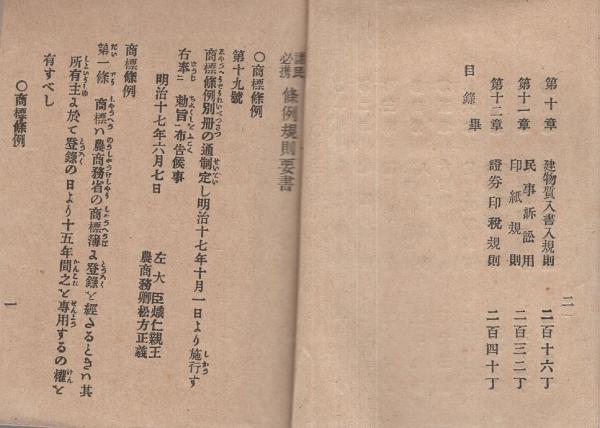 第十章　建物質入書入規則　二百十六丁
第十一章　民事訴訟用印紙規則　二百三二丁
第十二章　證券印税規則　二百四十丁
目錄畢
二
必携　條例規則要書
〇商標條例
第十九號
商標條例別册の通制定し明治十七年十月一日より施行す
右奉ニ　勅旨一布告候事
明治十七年六月七日
左大臣熾仁親王
農商務卿松方正義
商標條例
第一條　商標ハ農商務省の商標簿ょ登錄と經さるときハ其
所有主ょ於て登錄の日より十五年間之と專用するの權と
有すべし
〇商標條例
一